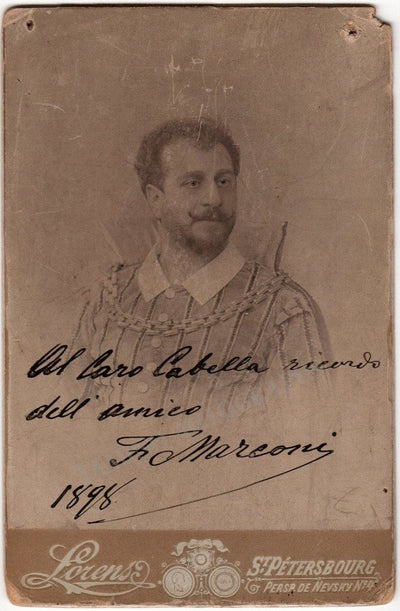 Al Caro Cabella ricordo
dell' amico
F. Marconi
1898
Lorens
St. PÉTERSBOURG,
PERSP. DE NEVSKY No 4